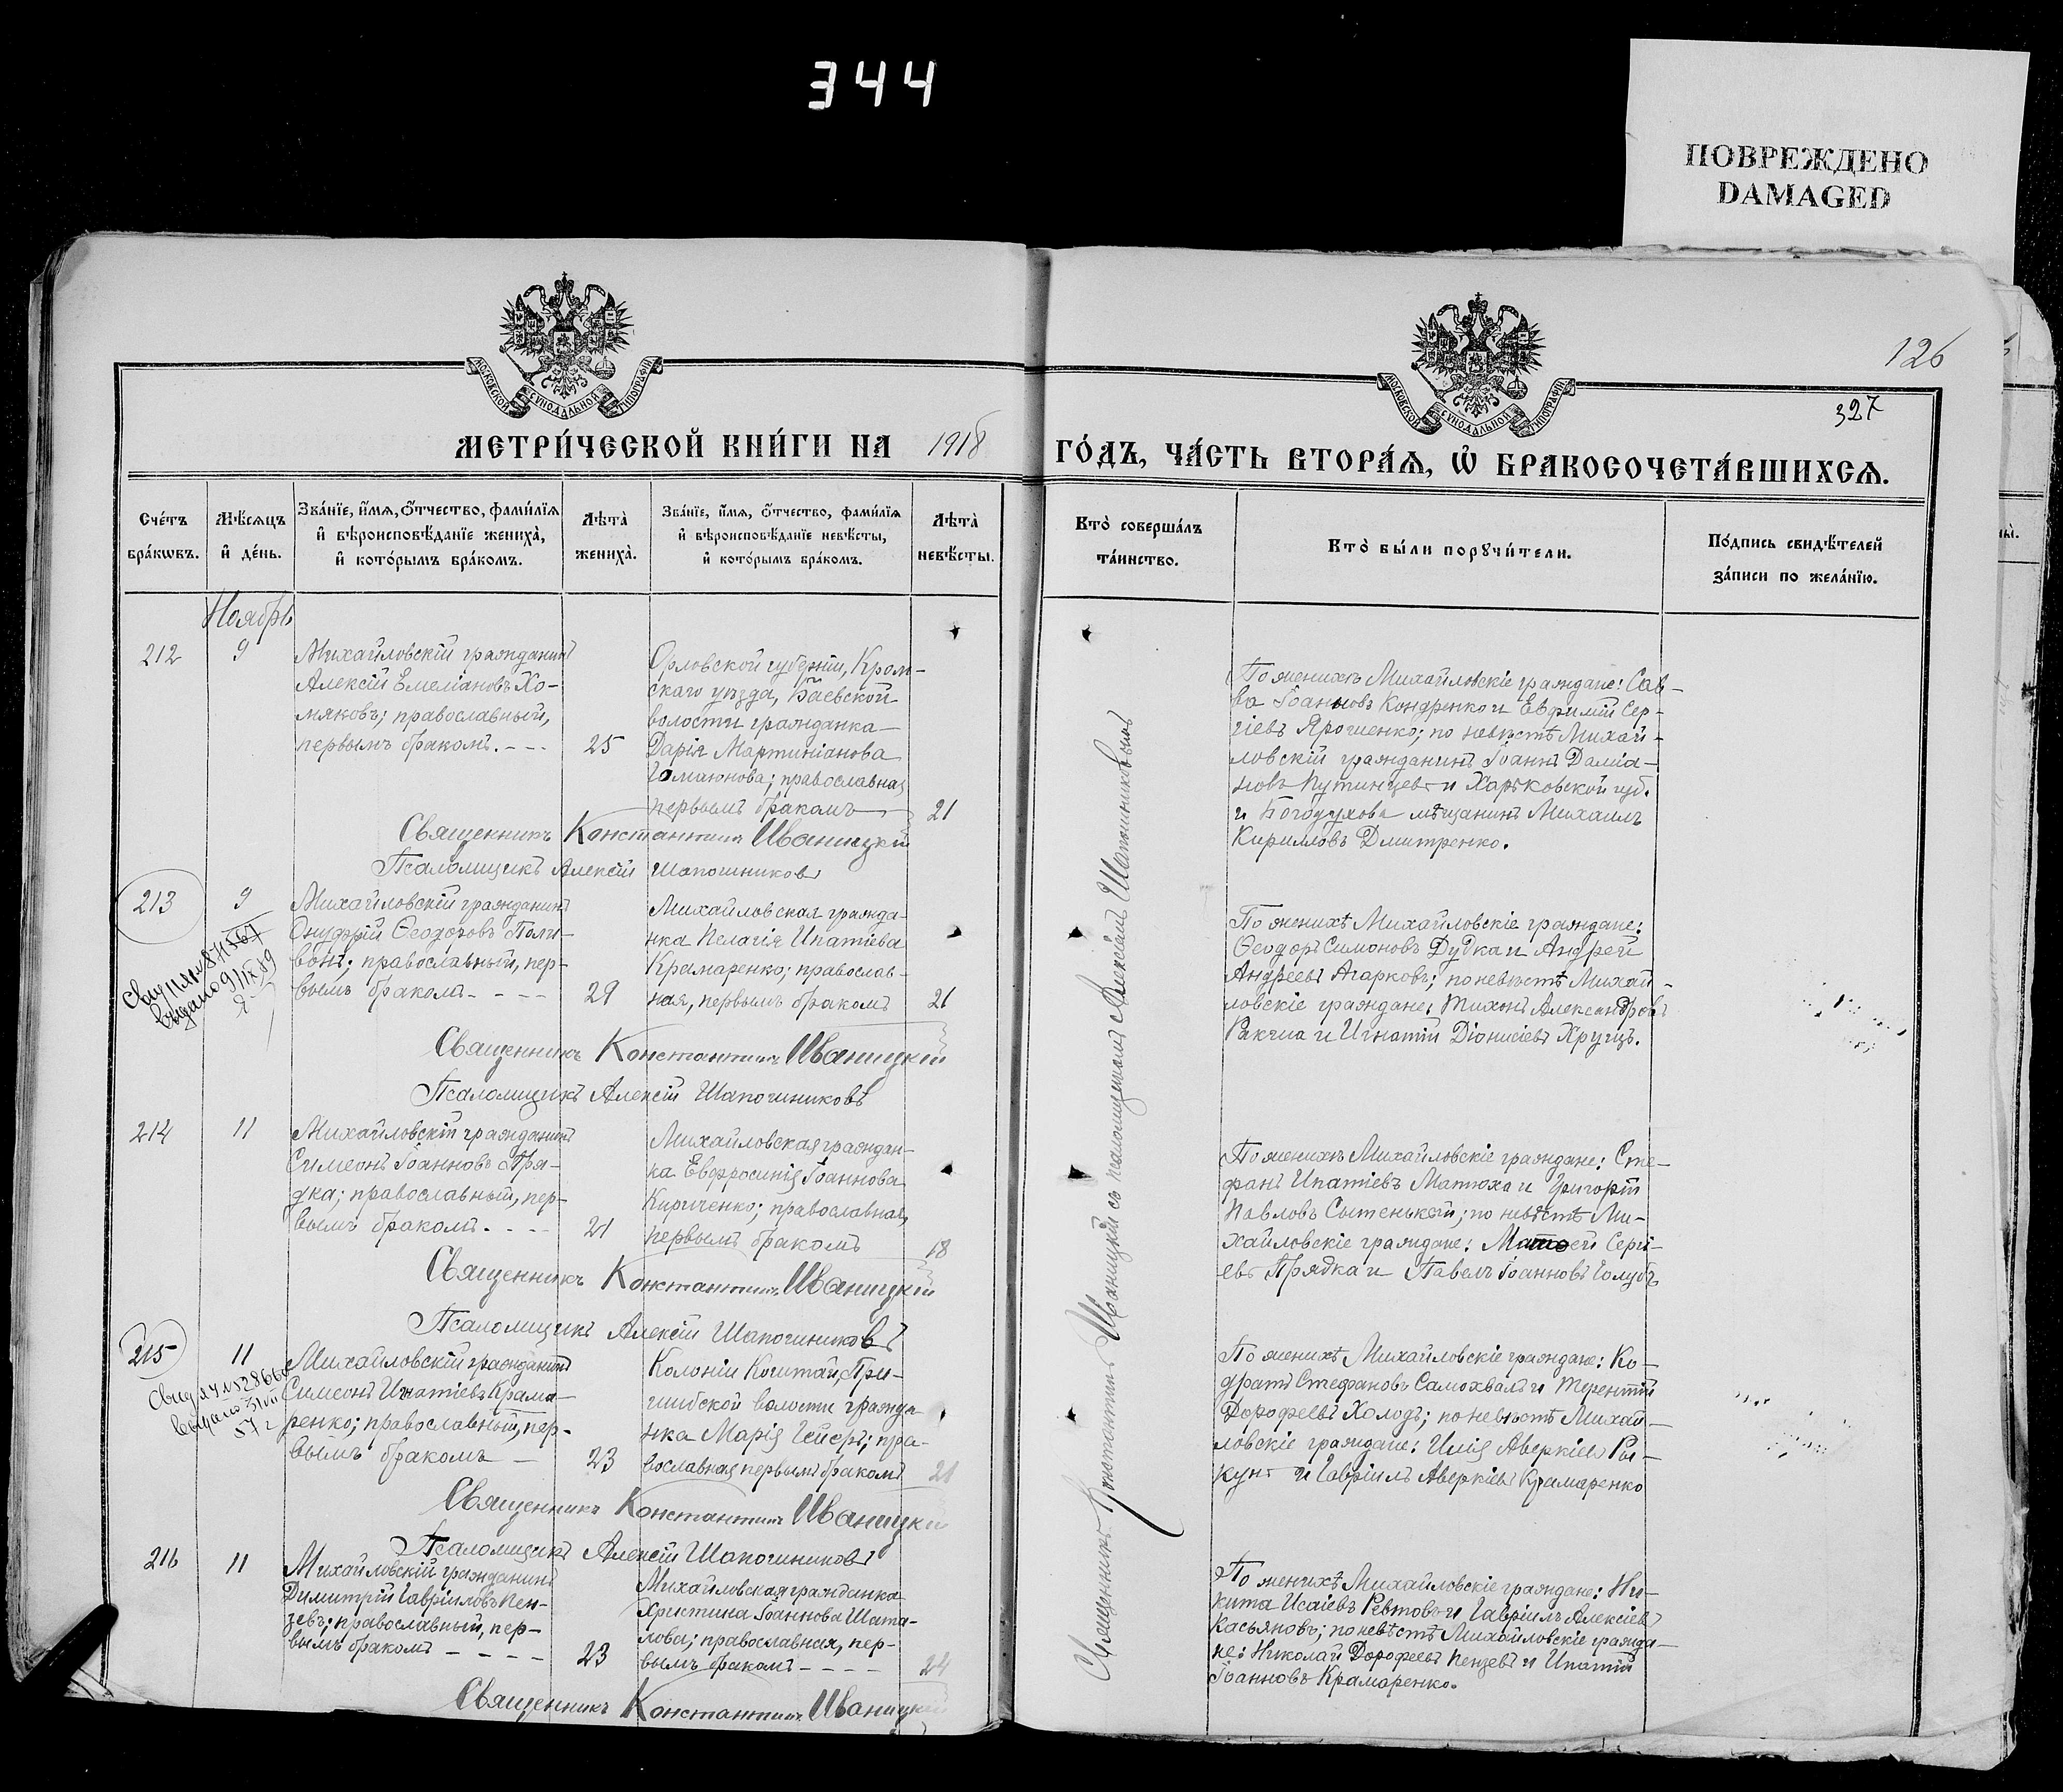 344
ПОВРЕЖДЕНО
DAMAGED
126
327
МОСКОВСКОЙ СѴНОДАЛЬНОЙ ТИПОГРАФІИ
МОСКОВСКОЙ СѴНОДАЛЬНОЙ ТИПОГРАФІИ
МЕТРИ́ЧЕСКОЙ КНИ́ГИ НА 1918
ГО́ДЪ, ЧА́СТЬ ВТОРА́Ѧ, Ѽ БРАКОСОЧЕТА́ВШИХСѦ.
Сче́тъ
бра́кѡвъ.
Мѣ́сяцъ
и҆ де́нь.
Зва́нїе, и҆́мя, ѻ҆́тчество, фами́лїя
и҆ вѣроисповѣ́данїе жениха̀,
и҆ кото́рымъ бра́комъ.
Лѣта̀
жениха̀.
Зва́нїе, и҆́мя, ѻ҆́тчество, фами́лїя
и҆ вѣроисповѣ́данїе невѣ́сты,
и҆ кото́рымъ бра́комъ.
Лѣта̀
невѣ́сты.
Кто̀ соверша́лъ
та́инство.
Кто̀ бы́ли порꙋчи́тели.
По́дпись свидѣ́телей
за́писи по жела́нїю.
Ноябрь
212
9
Михайловскій гражданинъ
Алексій Емеліановъ Хо-
мяковъ; православный,
первымъ бракомъ. - - -
25
Орловской губерніи, Кром-
скаго уѣзда, Баевской
волости гражданка
Дарія Мартиніанова
Гамаюнова; православная
первымъ бракомъ
21
По женихѣ Михайловскіе граждане: Сав-
ва Іоанновъ Кондренко и Евфимій Сер-
гіевъ Ярошенко; по невѣстѣ Михай-
ловскій гражданинъ Іоаннъ Даміа-
новъ Путинцевъ и Харьковской губ.
г. Богодухова мѣщанинъ Михаилъ
Кирилловъ Дмитренко.
Священникъ Константинъ Иваницкій
Псаломщикъ Алексій Шапошниковъ
213
9
Михайловскій гражданинъ
Онуфрій Ѳеодоровъ Поли-
вонъ; православный, пер-
вымъ бракомъ - - - -
29
Михайловская гражда-
нка Пелагія Ипатіева
Крамаренко; православ-
ная, первымъ бракомъ
21
По женихѣ Михайловскіе граждане:
Ѳеодоръ Симоновъ Дудка и Андрей
Андреевъ Агарковъ; по невѣстѣ Михай-
ловскіе граждане: Тихонъ Александровъ
Ракша и Игнатій Діонисіевъ Хрущъ.
Священникъ Константинъ Иваницкій
Псаломщикъ Алексій Шапошниковъ
214
11
Михайловскій гражданинъ
Симеонъ Іоанновъ Пря-
дка; православный, пер-
вымъ бракомъ. - - -
21
Михайловская граждан-
ка Евфросинія Іоаннова
Кириченко; православная,
первымъ бракомъ
18
По женихѣ Михайловскіе граждане: Сте-
фанъ Ипатіевъ Матюха и Григорій
Павловъ Сытенькій; по невѣстѣ Ми-
хайловскіе граждане: Матѳей Сергі-
евъ Прядка и Павелъ Іоанновъ Голубъ
Священникъ Константинъ Иваницкій
Псаломщикъ Алексій Шапошниковъ
215
11
Михайловскій гражданинъ
Симеонъ Игнатіевъ Крама-
ренко; православный, пер-
вымъ бракомъ -
23
Колоніи Коштай, При-
шибской волости гражда
нка Марія Гейеръ; пра-
вославная первымъ бракомъ
21
По женихѣ Михайловскіе граждане: Ко-
дратъ Стефановъ Самохвалъ и Терентій
Дорофеевъ Холодъ; по невѣстѣ Михай-
ловскіе граждане: Илія Аверкіевъ Ры-
кунъ и Гавріилъ Аверкіевъ Крамаренко
Священникъ Константинъ Иваницкій
Псаломщикъ Алексій Шапошниковъ
216
11
Михайловскій гражданинъ
Димитрій Гавріиловъ Пен-
зевъ; православный, пер-
вымъ бракомъ - - - -
23
Михайловская гражданка
Христина Іоаннова Шата-
лова; православная, пер-
вымъ бракомъ - - - -
24
По женихѣ Михайловскіе граждане: Ни-
кита Исаіевъ Ревтовъ и Гавріилъ Алексіевъ
Касьяновъ; по невѣстѣ Михайловскіе гражда-
не: Николай Дорофеевъ Пензевъ и Ипатій
Іоанновъ Крамаренко.
Священникъ Константинъ Иваницкій
Священникъ Константинъ Иваницкій съ псаломщикомъ Алексіемъ Шапошниковымъ